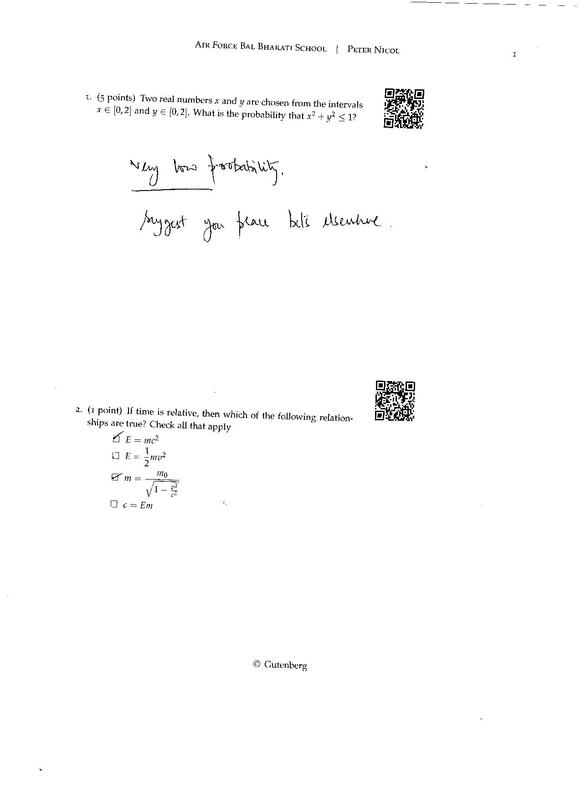 AIR FORCE BAL BHARATI SCHOOL | PETER NICOL
1
1. (5 points) Two real numbers x and y are chosen from the intervals
x ∈ [0, 2] and y ∈ [0, 2]. What is the probability that x² + y² ≤ 1?
Very low probability.
Suggest you place bets elsewhere.
2. (1 point) If time is relative, then which of the following relation-
ships are true? Check all that apply
☑ E = mc²
☐ E = 1/2 mv²
☑ m = m₀ / √(1 − v²/c²)
☐ c = Em
© Gutenberg